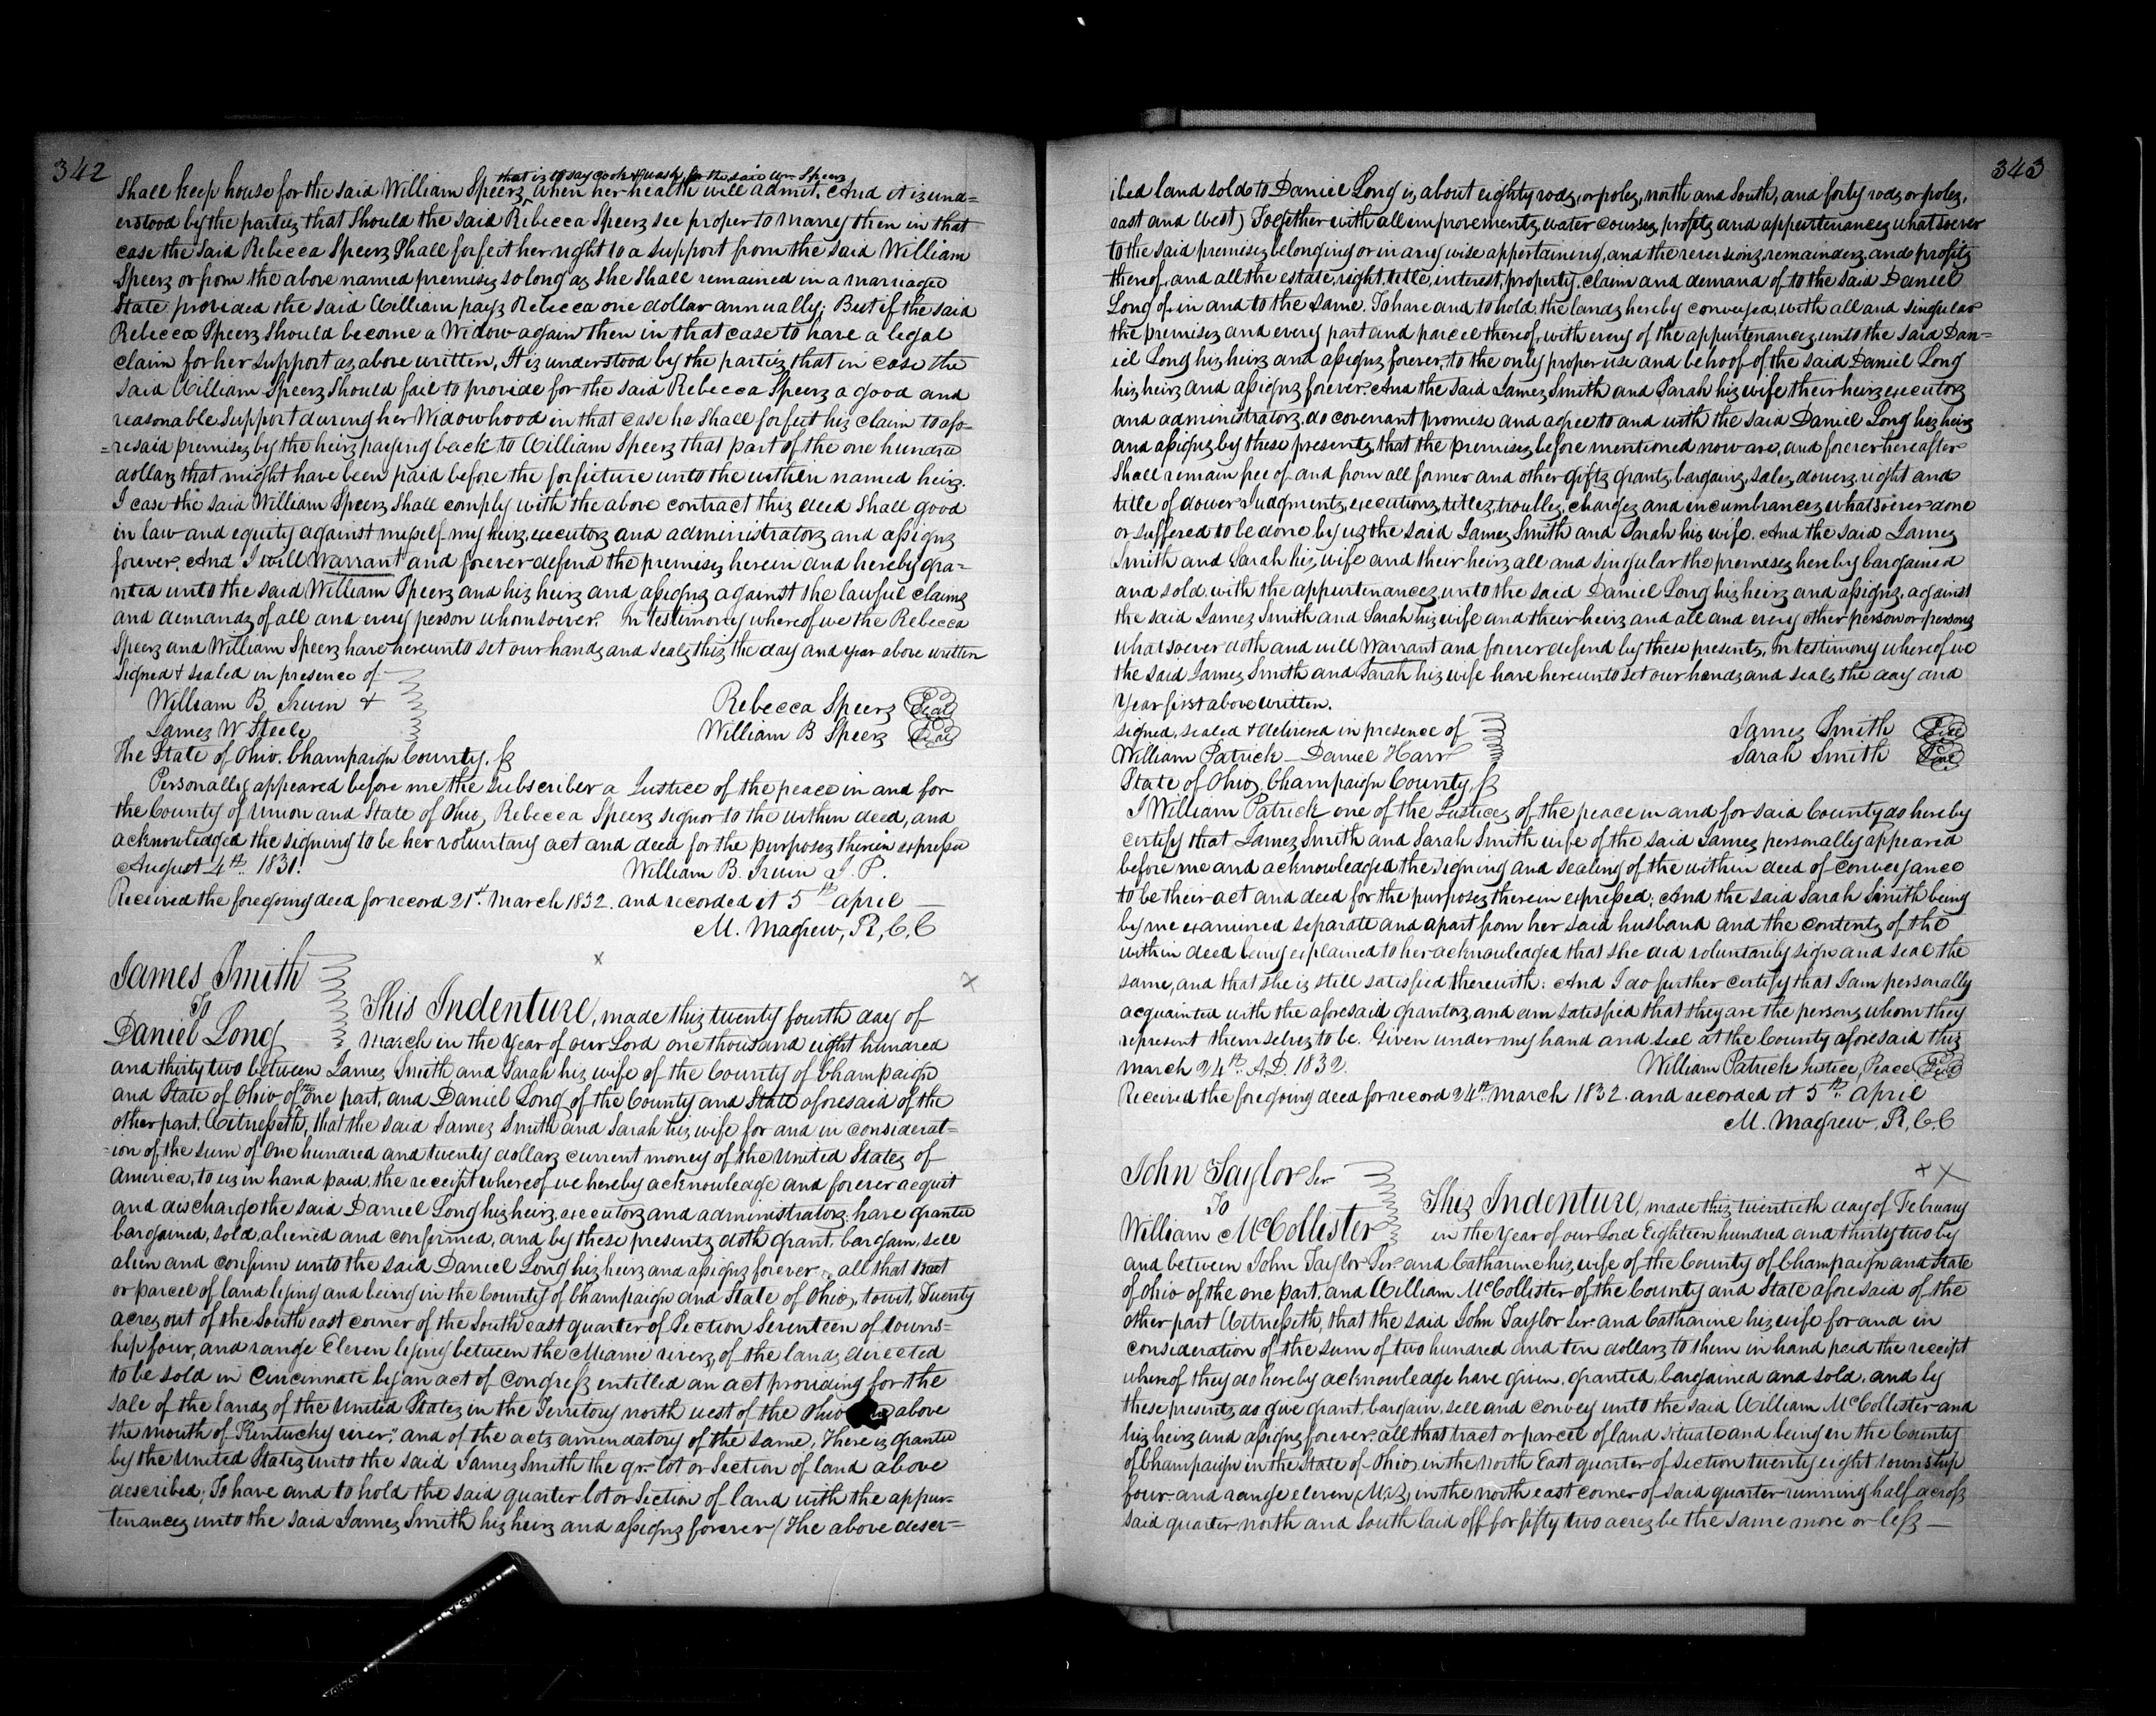 342
that is to say cook & wash for the said Wm Speers
Shall keep house for the said William Speers, when her health will admit. And it is und=
erstood by the parties that Should the said Rebecca Speers see proper to marry then in that
case the said Rebecca Speers Shall forfeit her right to a support from the said William
Speers or from the above named premises so long as she shall remained in a marriaged
State provided the said William pays Rebecca one dollar annually; But if the said
Rebecca Speers Should become a Widow again then in that case to have a legal
claim for her support as above written, It is understood by the parties that in case the
said William Speers Should fail to provide for the said Rebecca Speers a good and
reasonable Support during her Widowhood in that case he Shall forfeit his claim to afo-
=resaid premises by the heirs paying back to William Speers that part of the one hundred
dollars that might have been paid before the forfieture unto the within named heirs.
I case the said William Speers Shall comply with the above contract this deed Shall good
in law and equity against myself my heirs, executors and administrators and assigns
forever. And I will Warrant and forever defend the premises herein and hereby gra-
nted unto the said William Speers and his heirs and assigns against the lawful claims
and demands of all and every person whomsoever. In testimony whereof we the Rebecca
Speers and William Speers have hereunto set our hands and seals this the day and year above written
Signed & sealed in presence of
William B. Irwin &
James W Steele
Rebecca Speers Seal
William B Speers Seal
The State of Ohio, Champaign County, ss
Personally appeared before me the Subscriber a Justice of the peace in and for
the County of Union and State of Ohio, Rebecca Speers signor to the within deed, and
acknowledged the signing to be her voluntary act and deed for the purposes therein expressed
August 4th 1831. William B. Irwin J. P.
Received the foregoing deed for record 21st March 1832. and recorded it 5th april
M. Magrew, R, C, C
James Smith
To
Daniel Long
This Indenture, made this twenty fourth day of
March in the year of our Lord one thousand eight hundred
and thirty two between James Smith and Sarah his wife of the County of Champaign
and State of Ohio of the one part, and Daniel Long of the County and State aforesaid of the
other part. Witnesseth, that the said James Smith and Sarah his wife for and in considerat=
=ion of the sum of One hundred and twenty dollars current money of the United States of
America, to us in hand paid, the receipt whereof we hereby acknowledge and forever acquit
and discharge the said Daniel Long his heirs, executors and administrators: have granted
bargained, sold, aliened and confirmed, and by these presents doth grant, bargain, sell
alien and confirm unto the said Daniel Long his heirs and assigns forever, all that tract
or parcel of land lying and being in the County of Champaign and State of Ohio, towit, Twenty
acres out of the South east corner of the South east quarter of Section Seventeen of towns=
hip four, and range Eleven lying between the Miami rivers, of the lands directed
to be sold in Cincinnate by an act of Congress entitled an act providing for the
sale of the lands of the United States in the Territory north west of the Ohio above
the mouth of Kentucky river," and of the acts amendatory of the same, There is granted
by the United States unto the said James Smith the qr. lot or Section of land above
described; To have and to hold the said quarter lot or Section of land with the appur=
tenances unto the said James Smith his heirs and assigns forever (The above descr=
343
ibed land sold to Daniel Long is about eighty rods, or poles, north and South, and forty rods or poles,
east and West) Together with all improvements, water courses, profits and appurtenances whatsoever
to the said premises belonging or in any wise appertaining, and the reversions, remainders and profits
thereof, and all the estate, right, title, interest, property, claim and demand of to the said Daniel
Long of, in and to the same. To have and to hold, the lands hereby conveyed, with all and singular
the premises and every part and parcel thereof, with every of the appurtenances, unto the said Dan=
iel Long his heirs and assigns forever, to the only proper use and behoof of the said Daniel Long
his heirs and assigns forever. And the said James Smith and Sarah his wife their heirs executors
and administrators, do covenant promise and agree to and with the said Daniel Long his heirs
and assigns by these presents, that the premises before mentioned now are, and forever hereafter
Shall remain free of, and from all former and other gifts, grants, bargains, sales, dowers, right and
title of dower Judgments, executions, titles, troubles, charges and incumbrances whatsoever done
or suffered to be done by us the said James Smith and Sarah his wife. And the said James
Smith and Sarah his wife and their heirs all and singular the premises hereby bargained
and sold with the appurtenances unto the said Daniel Long his heirs and assigns, against
the said James Smith and Sarah his wife and their heirs and all and every other person or persons
whatsoever doth and will Warrant and forever defend by these presents, In testimony whereof we
the said James Smith and Sarah his wife have hereunto set our hands and seals the day and
Year first above written.
signed, sealed & delivered in presence of
William Patrick - Daniel Harr
James Smith Seal
Sarah Smith Seal
State of Ohio, Champaign County, ss
I William Patrick one of the Justices of the peace in and for said County do hereby
certify that James Smith and Sarah Smith wife of the said James personally appeared
before me and acknowledged the Signing and sealing of the within deed of conveyance
to be their act and deed for the purposes therein expressed; And the said Sarah Smith being
by me examined separate and apart from her said husband and the contents of the
within deed being explained to her acknowledged that she did voluntarily sign and seal the
same, and that she is still satisfied therewith: And I do further certify that I am personally
acquainted with the aforesaid grantors, and am satisfied that they are the persons whom they
represent themselves to be. Given under my hand and seal at the County aforesaid this
march 24th A.D. 1832. William Patrick Justice, Peace Seal
Received the foregoing deed for record 24th March 1832. and recorded it 5th april
M. Magrew, R, C, C
John Taylor Ser
To
William McCollister
This Indenture, made this twentieth day of February
in the Year of our Lord Eighteen hundred and thirty two by
and between John Taylor Ser. and Catharine his wife of the County of Champaign and State
of Ohio of the one part, and William McCollister of the County and State aforesaid of the
other part Witnesseth, that the said John Taylor Ser. and Catharine his wife for and in
consideration of the sum of two hundred and ten dollars to them in hand paid the receipt
whereof they do hereby acknowledge have given, granted, bargained and sold, and by
these presents, do give grant, bargain, sell and convey unto the said William McCollister and
his heirs and assigns forever. all that tract or parcel of land situate and being in the County
of Champaign in the State of Ohio, in the North East quarter of Section twenty eight township
four and range eleven, M.R.S, in the north east corner of said quarter running half across
said quarter north and South laid off for fifty two acres be the same more or less —